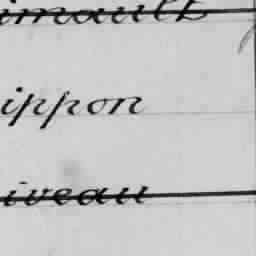 imault
ippon
iveau